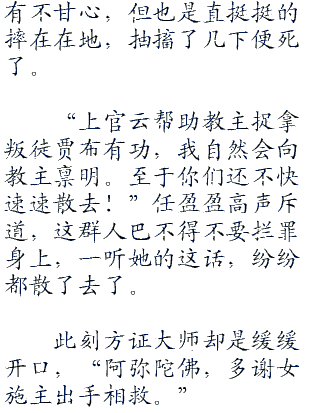 有不甘心，但也是直挺挺的
摔在在地，抽搐了几下便死
了。
“上官云帮助教主捉拿
叛徒贾布有功，我自然会向
教主禀明。至于你们还不快
速速散去！”任盈盈高声斥
道，这群人巴不得不要拦罪
身上，一听她的这话，纷纷
都散了去了。
此刻方证大师却是缓缓
开口，“阿弥陀佛，多谢女
施主出手相救。”